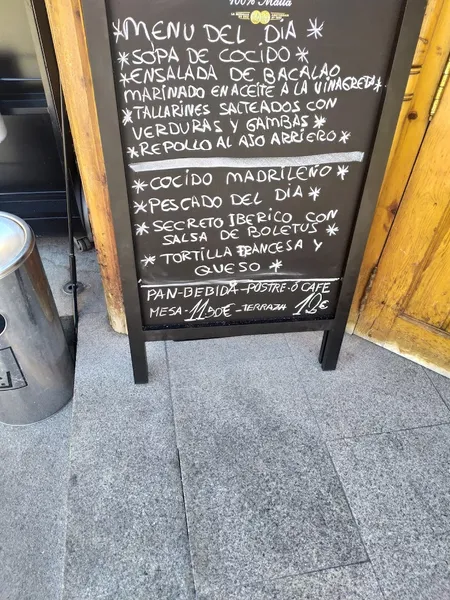 100% Malta
*MENU DEL DÍA*
*SOPA DE COCIDO*
*ENSALADA DE BACALAO
MARINADO EN ACEITE A LA VINAGRETA*
*TALLARINES SALTEADOS CON
VERDURAS Y GAMBAS*
*REPOLLO AL AJO ARRIERO*
*COCIDO MADRILEÑO*
*PESCADO DEL DIA*
*SECRETO IBERICO CON
SALSA DE BOLETUS*
*TORTILLA FRANCESA Y
QUESO*
PAN-BEBIDA-POSTRE-Ó CAFE
MESA-11,50€-TERRAZA